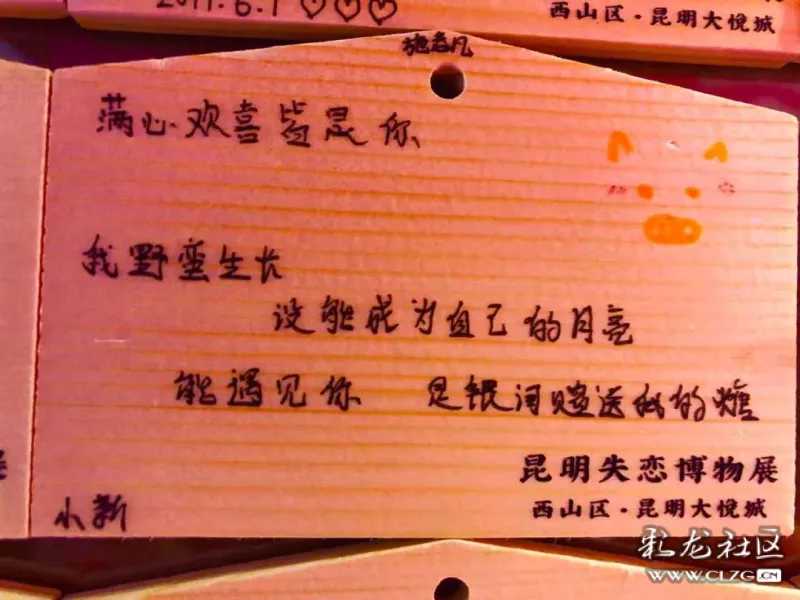 2017.6.1 ♡♡♡
西山区·昆明大悦城
施春凡
满心欢喜皆是你
我野蛮生长
没能成为自己的月亮
能遇见你 是银河赠送我的糖
小新
昆明失恋博物展
西山区·昆明大悦城
彩龙社区
WWW.CLZG.CN